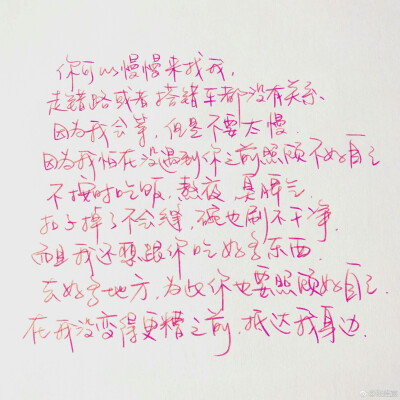 你可以慢慢来找我,
走错路或者搭错车都没有关系、
因为我会等,但是不要太慢.
因为我怕在没遇到你之前照顾不好自己
不按时吃饭,熬夜,臭脾气.
扣子掉了不会缝,碗也刷不干净.
而且我还要跟你吃好多东西.
去好多地方,为此你也要照顾好自己.
在我没变得更糟之前,抵达我身边.